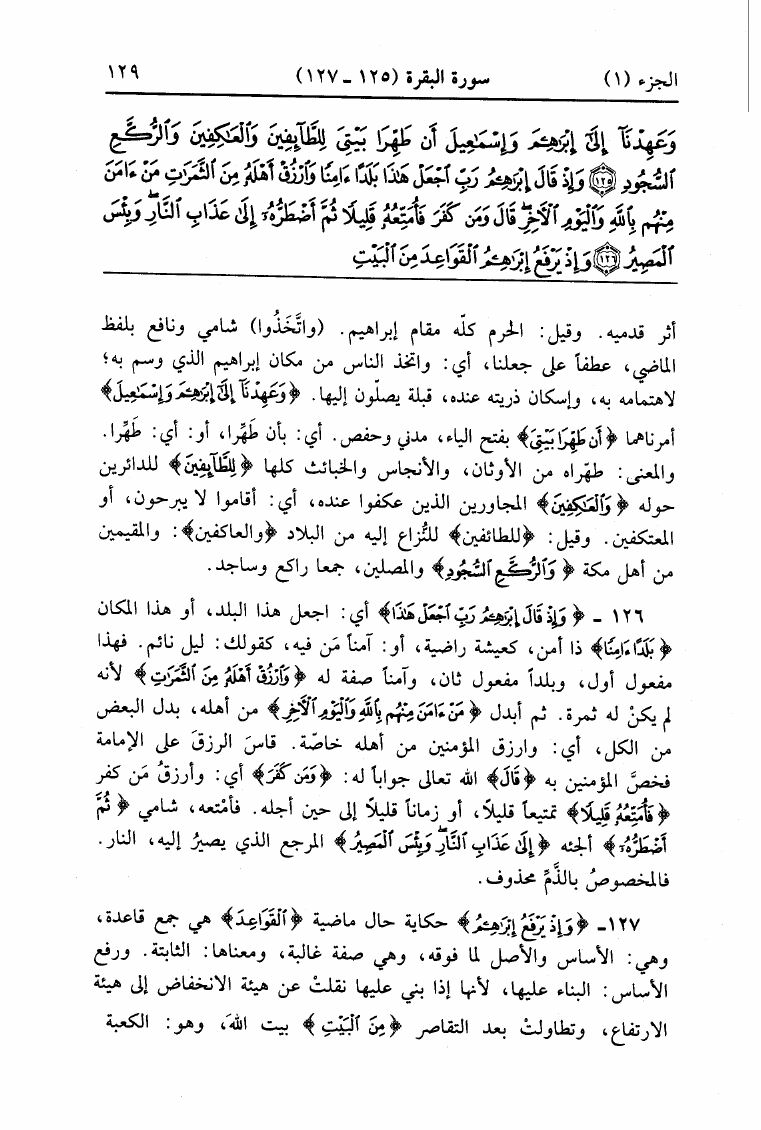 الجزء (١) سورة البقرة (١٢٥ – ١٢٧) ١٢٩
وَعَهِدْنَآ إِلَىٰٓ إِبْرَٰهِـۧمَ وَإِسْمَٰعِيلَ أَن طَهِّرَا بَيْتِىَ لِلطَّآئِفِينَ وَٱلْعَٰكِفِينَ وَٱلرُّكَّعِ
ٱلسُّجُودِ ﴿١٢٥﴾ وَإِذْ قَالَ إِبْرَٰهِـۧمُ رَبِّ ٱجْعَلْ هَٰذَا بَلَدًا ءَامِنًا وَٱرْزُقْ أَهْلَهُۥ مِنَ ٱلثَّمَرَٰتِ مَنْ ءَامَنَ
مِنْهُم بِٱللَّهِ وَٱلْيَوْمِ ٱلْءَاخِرِ ۖ قَالَ وَمَن كَفَرَ فَأُمَتِّعُهُۥ قَلِيلًا ثُمَّ أَضْطَرُّهُۥٓ إِلَىٰ عَذَابِ ٱلنَّارِ ۖ وَبِئْسَ
ٱلْمَصِيرُ ﴿١٢٦﴾ وَإِذْ يَرْفَعُ إِبْرَٰهِـۧمُ ٱلْقَوَاعِدَ مِنَ ٱلْبَيْتِ
أثر قدميه. وقيل: الحرم كلّه مقام إبراهيم. (واتَّخَذُوا) شامي ونافع بلفظ
الماضي، عطفاً على جعلنا، أي: واتخذ الناس من مكان إبراهيم الذي وسم به؛
لاهتمامه به، وإسكان ذريته عنده، قبلة يصلّون إليها. ﴿وَعَهِدْنَآ إِلَىٰٓ إِبْرَٰهِـۧمَ وَإِسْمَٰعِيلَ﴾
أمرناهما ﴿أَن طَهِّرَا بَيْتِىَ﴾ بفتح الياء، مدني وحفص. أي: بأن طَهِّرا، أو: أي: طَهِّرا.
والمعنى: طهّراه من الأوثان، والأنجاس والخبائث كلها ﴿لِلطَّآئِفِينَ﴾ للدائرين
حوله ﴿وَٱلْعَٰكِفِينَ﴾ المجاورين الذين عكفوا عنده، أي: أقاموا لا يبرحون، أو
المعتكفين. وقيل: ﴿للطائفين﴾ للنُّزاع إليه من البلاد ﴿والعاكفين﴾: والمقيمين
من أهل مكة ﴿وَٱلرُّكَّعِ ٱلسُّجُودِ﴾ والمصلين، جمعا راكع وساجد.
١٢٦ – ﴿وَإِذْ قَالَ إِبْرَٰهِـۧمُ رَبِّ ٱجْعَلْ هَٰذَا﴾ أي: اجعل هذا البلد، أو هذا المكان
﴿بَلَدًا ءَامِنًا﴾ ذا أمن، كعيشة راضية، أو: آمناً مَن فيه، كقولك: ليل نائم. فهذا
مفعول أول، وبلداً مفعول ثان، وآمناً صفة له ﴿وَٱرْزُقْ أَهْلَهُۥ مِنَ ٱلثَّمَرَٰتِ﴾ لأنه
لم يكنْ له ثمرة. ثم أبدل ﴿مَنْ ءَامَنَ مِنْهُم بِٱللَّهِ وَٱلْيَوْمِ ٱلْءَاخِرِ﴾ من أهله، بدل البعض
من الكل، أي: وارزق المؤمنين من أهله خاصّة. قاسَ الرزقَ على الإمامة
فخصَّ المؤمنين به ﴿قَالَ﴾ الله تعالى جواباً له: ﴿وَمَن كَفَرَ﴾ أي: وأرزقُ مَن كفر
﴿فَأُمَتِّعُهُۥ قَلِيلًا﴾ تمتيعاً قليلاً، أو زماناً قليلاً إلى حين أجله. فأمْتعه، شامي ﴿ثُمَّ
أَضْطَرُّهُۥٓ﴾ ألجئه ﴿إِلَىٰ عَذَابِ ٱلنَّارِ ۖ وَبِئْسَ ٱلْمَصِيرُ﴾ المرجع الذي يصيرُ إليه، النار.
فالمخصوصُ بالذَّمِّ محذوف.
١٢٧- ﴿وَإِذْ يَرْفَعُ إِبْرَٰهِـۧمُ﴾ حكاية حال ماضية ﴿ٱلْقَوَاعِدَ﴾ هي جمع قاعدة،
وهي: الأساس والأصل لما فوقه، وهي صفة غالبة، ومعناها: الثابتة. ورفع
الأساس: البناء عليها، لأنها إذا بني عليها نقلتْ عن هيئة الانخفاض إلى هيئة
الارتفاع، وتطاولتْ بعد التقاصر ﴿مِنَ ٱلْبَيْتِ﴾ بيت اللهَ، وهو: الكعبة